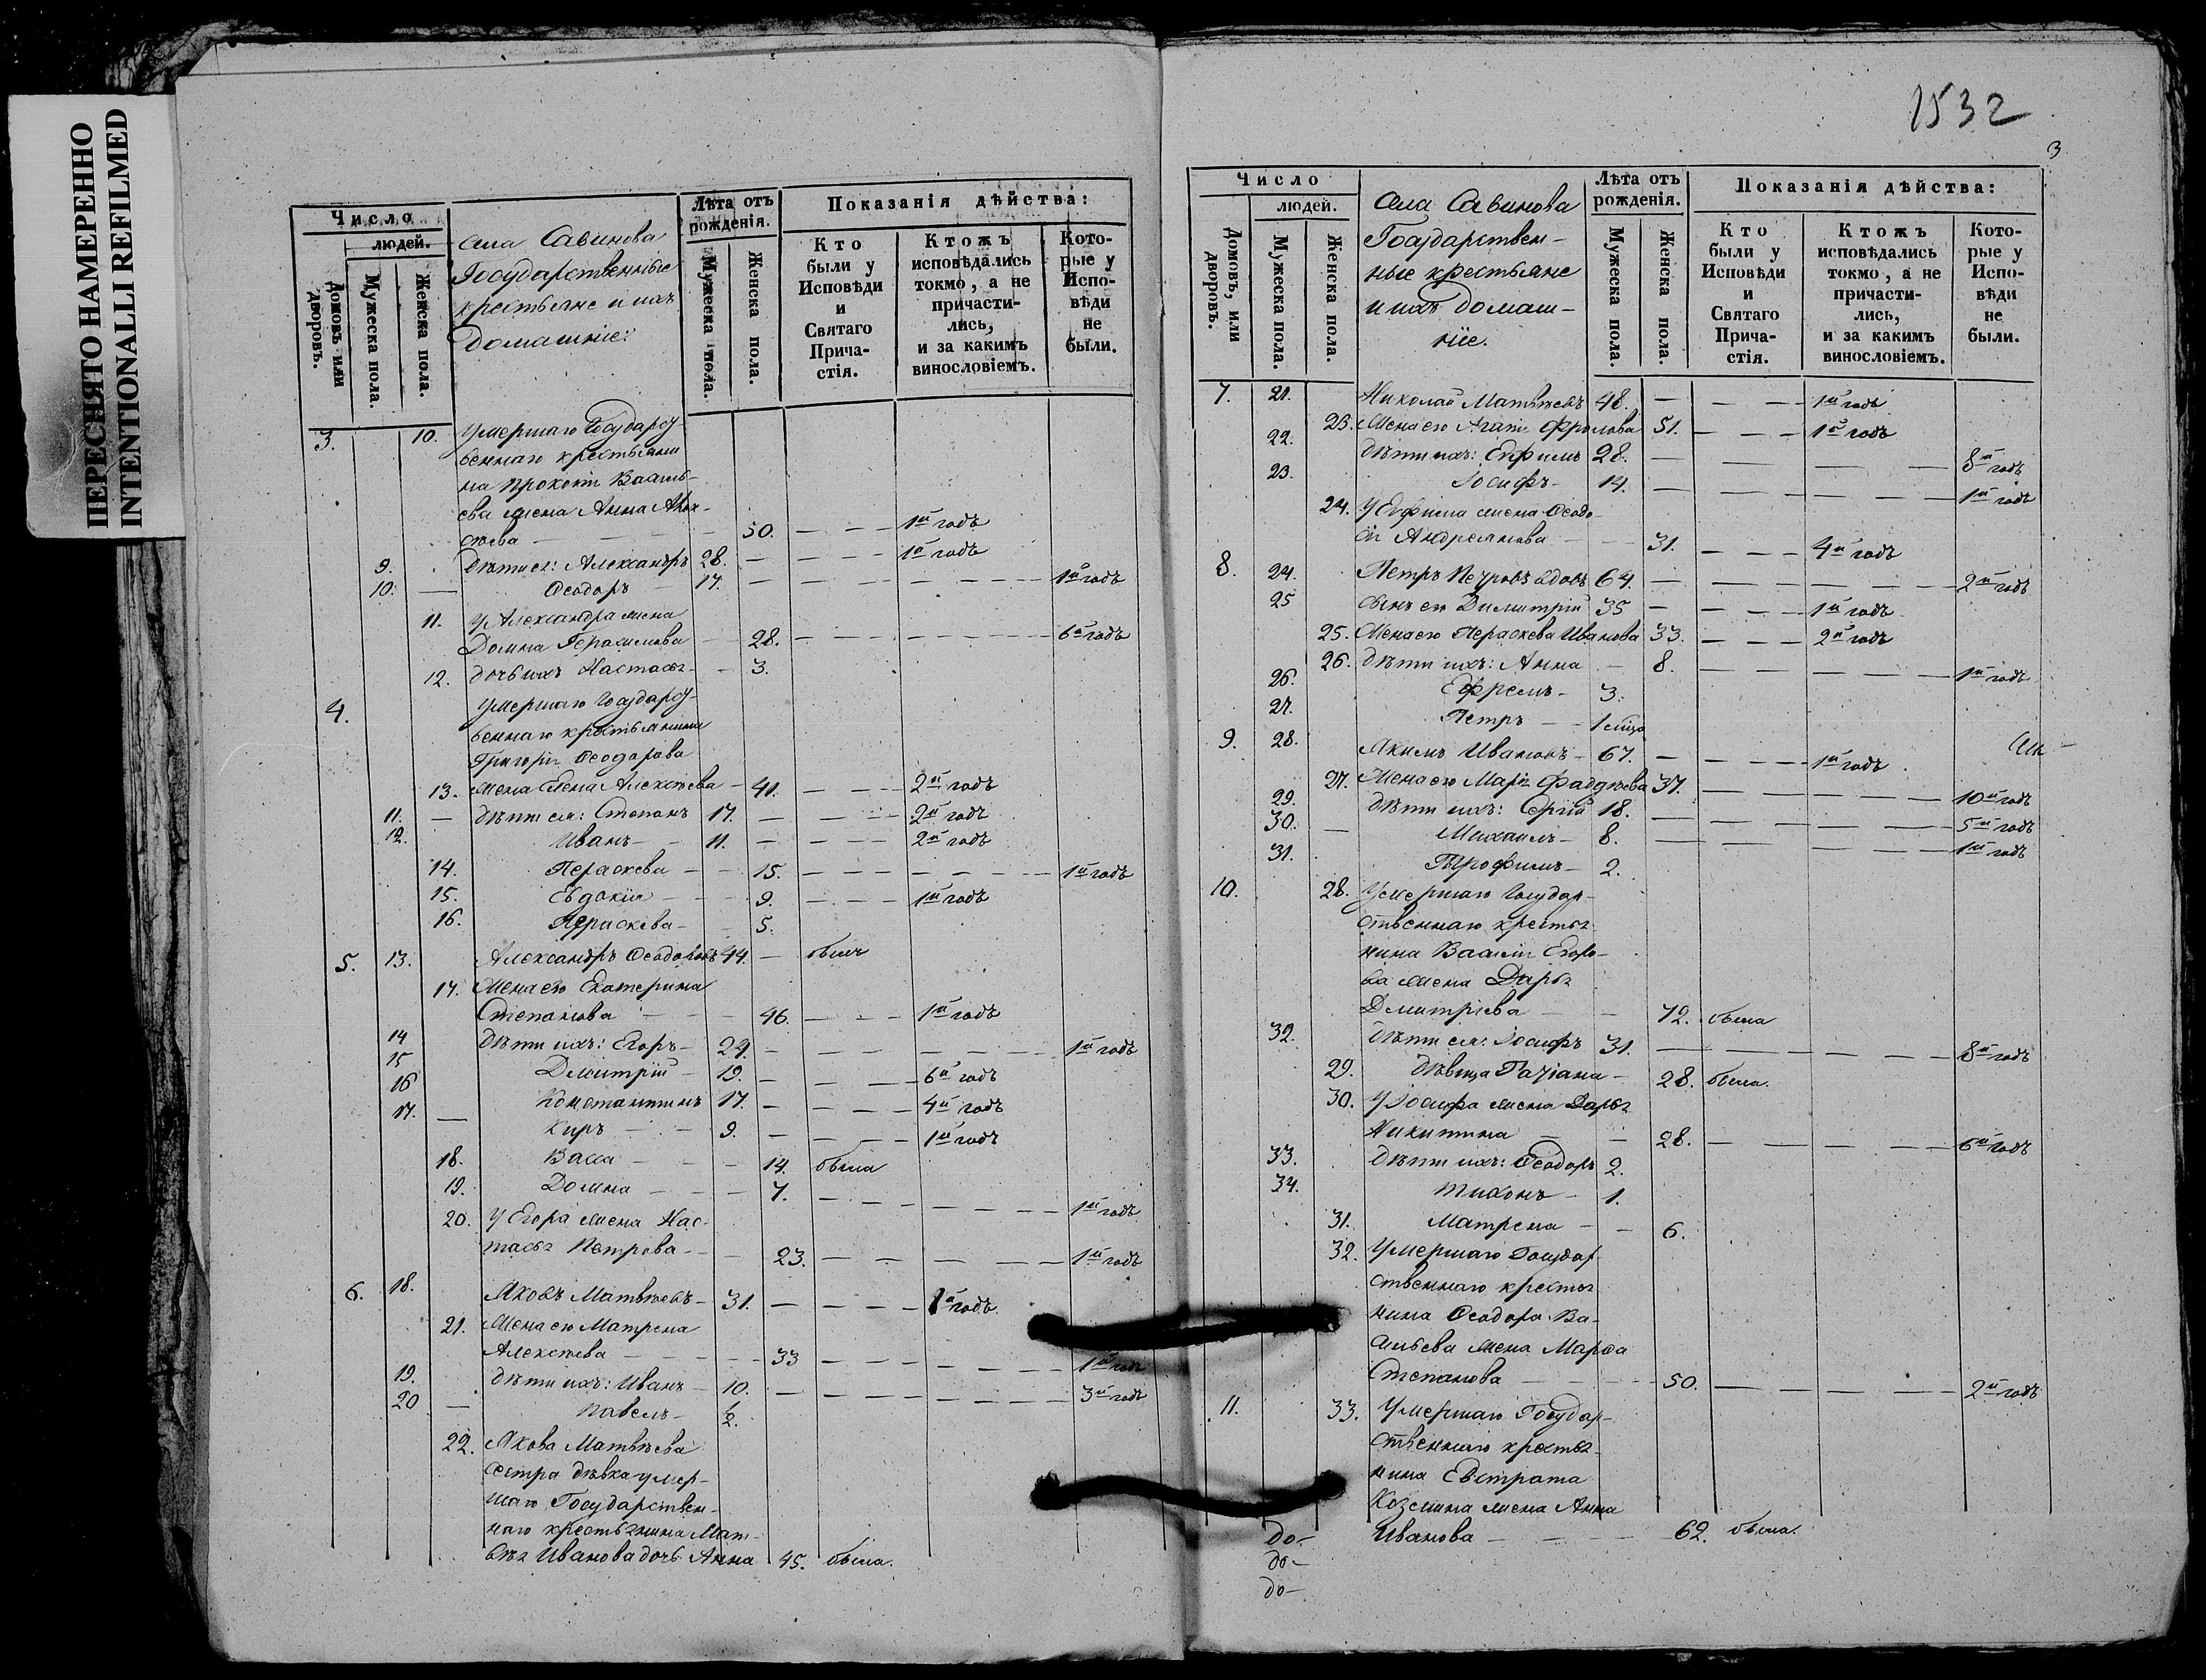 ПЕРЕСНЯТО НАМЕРЕННО
INTENTIONALLI REFILMED
Число
людей.
Домовъ или дворовъ.
Мужеска пола.
Женска пола.
села Савинова
Государственные
крестьяне и ихъ
домашніе:
Лѣта отъ рожденія.
Мужеска пола.
Женска пола.
Показанія дѣйства:
Кто были у Исповѣди и Святаго Прича- стія.
Ктожъ исповѣдались токмо, а не причасти- лись, и за какимъ винословіемъ.
Кото- рые у Испо- вѣди не были.
3. 10. Умершаго Государст-
веннаго крестьяни
на Прокопія Василь-
ева жена Анна Алек-
сѣева — 50. — — — 1й годъ
9. Дѣти ея: Александръ 28. — — — 1й годъ
10. — Ѳеодоръ — 17. — — — — — 1й годъ
11. У Александра жена
Домна Герасимова — 28. — — — — — 6й годъ
12. дочь ихъ Настасья — 3.
4. Умершаго Государст-
веннаго крестьянина
Григорія Ѳеодорова
13. жена Елена Алексѣева — 41. — — — 2й годъ
11. — дѣти ея: Степанъ 17. — — — 2й годъ
12. Иванъ — 11. — — — 2й годъ
14. Параскева — 15. — — — — — 1й годъ
15. Евдокія — 9. — — — 1й годъ
16. Параскева — 5.
5. 13. Александръ Ѳеодоровъ 44. — былъ
17. Жена его Екатерина
Степанова — 46. — — — 1й годъ
14 дѣти ихъ: Егоръ — 24. — — — — — 1й годъ
15 Дмитрій — 19. — — — 6й годъ
16 Константинъ 17. — — — 4й годъ
17. — Киръ — 9. — — — 1й годъ
18. Васса — 14. была
19. Домна — 7. — — — — — 1й годъ
20. У Егора жена Нас-
тасья Петрова — 23. — — — — — 1й годъ
6. 18. Яковъ Матвѣевъ — 31. — — — 1й годъ
21. Жена его Матрена
Алексѣева — 33 — — — — — 1й годъ
19. дѣти ихъ: Иванъ — 10. — — — — — 3й годъ
20 — Павелъ — ½.
22. Якова Матвѣева
сестра дѣвка умер-
шаго Государствен-
наго крестьянина Мат-
вѣя Иванова дочь Анна 45. была.
1532
3
Число
людей.
Домовъ, или дворовъ.
Мужеска пола.
Женска пола.
села Савинова
Государствен-
ные крестьяне
и ихъ домаш-
ніе.
Лѣта отъ рожденія.
Мужеска пола.
Женска пола.
Показанія дѣйства:
Кто были у Исповѣди и Святаго Прича- стія.
Ктожъ исповѣдались токмо, а не причасти- лись, и за какимъ винословіемъ.
Кото- рые у Испо- вѣди не были.
7. 21. Николай Матвѣевъ 48. — — — 1й годъ
23. Жена его Агаѳія Фролова 51. — — — 1й годъ
22. дѣти ихъ: Ефимъ 28. — — — 8й годъ
23. Іосифъ — 14. — — — — 1й годъ
24. У Евфима жена Ѳеодо-
сія Андреянова — 31. — — — 4й годъ
8. 24. Петръ Петровъ вдовъ 64. — — — — 2й годъ
25 сынъ его Димитрій 35 — — — 1й годъ
25. Жена его Параскева Иванова 33. — — — 2й годъ
26. дѣти ихъ: Анна — 8. — — — — 1й годъ
26. Ефремъ — 3.
27. Петръ — 1 мѣся
9. 28. Якимъ Ивановъ — 67. — — — 1й годъ
27. Жена его Марія Фаддѣева 37. — — — — 10й годъ
29. дѣти ихъ: Сергій 18. — — — — 5й годъ
30. — Михаилъ — 8. — — — — 1й годъ
31. Трофимъ — 2.
10. 28. Умершаго Государ-
ственнаго крестья
нина Василія Егоро-
ва жена Дарья
Дмитріева — 72. была
32. дѣти ея: Іосифъ 31. — — — — 8й годъ
29. дѣвица Татіана — 28. была.
30. У Іосифа жена Дарья
Никитина — 28. — — — — 6й годъ
33. дѣти ихъ: Ѳеодоръ 2.
34. Тихонъ — 1.
31. Матрена — — 6.
32. Умершаго Государ
ственнаго крестья
нина Ѳеодора Ва-
сильева жена Марѳа
Степанова — 50. — — — — 2й годъ
11. 33. Умершаго Государ-
ственнаго крестья-
нина Евстрата
Козмина жена Анна
до- Иванова — 62. была.
до-
до-